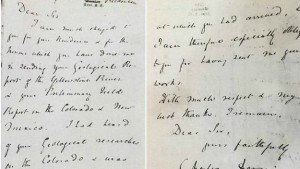 Dear Sir
I am much obliged to
you for your kindness & for the
honour which you have done me
in sending your Geological Re-
port of the Yellowstone River
& your Preliminary Field
Report on the Colorado & New
Mexico. I had heard
of your Geological researches
on the Colorado & was
at which you had arrived, &
I am therefore especially obliged
to you for having sent me your
works.
With much respect & my
best thanks. I remain
Dear Sir,
yours faithfully
Charles